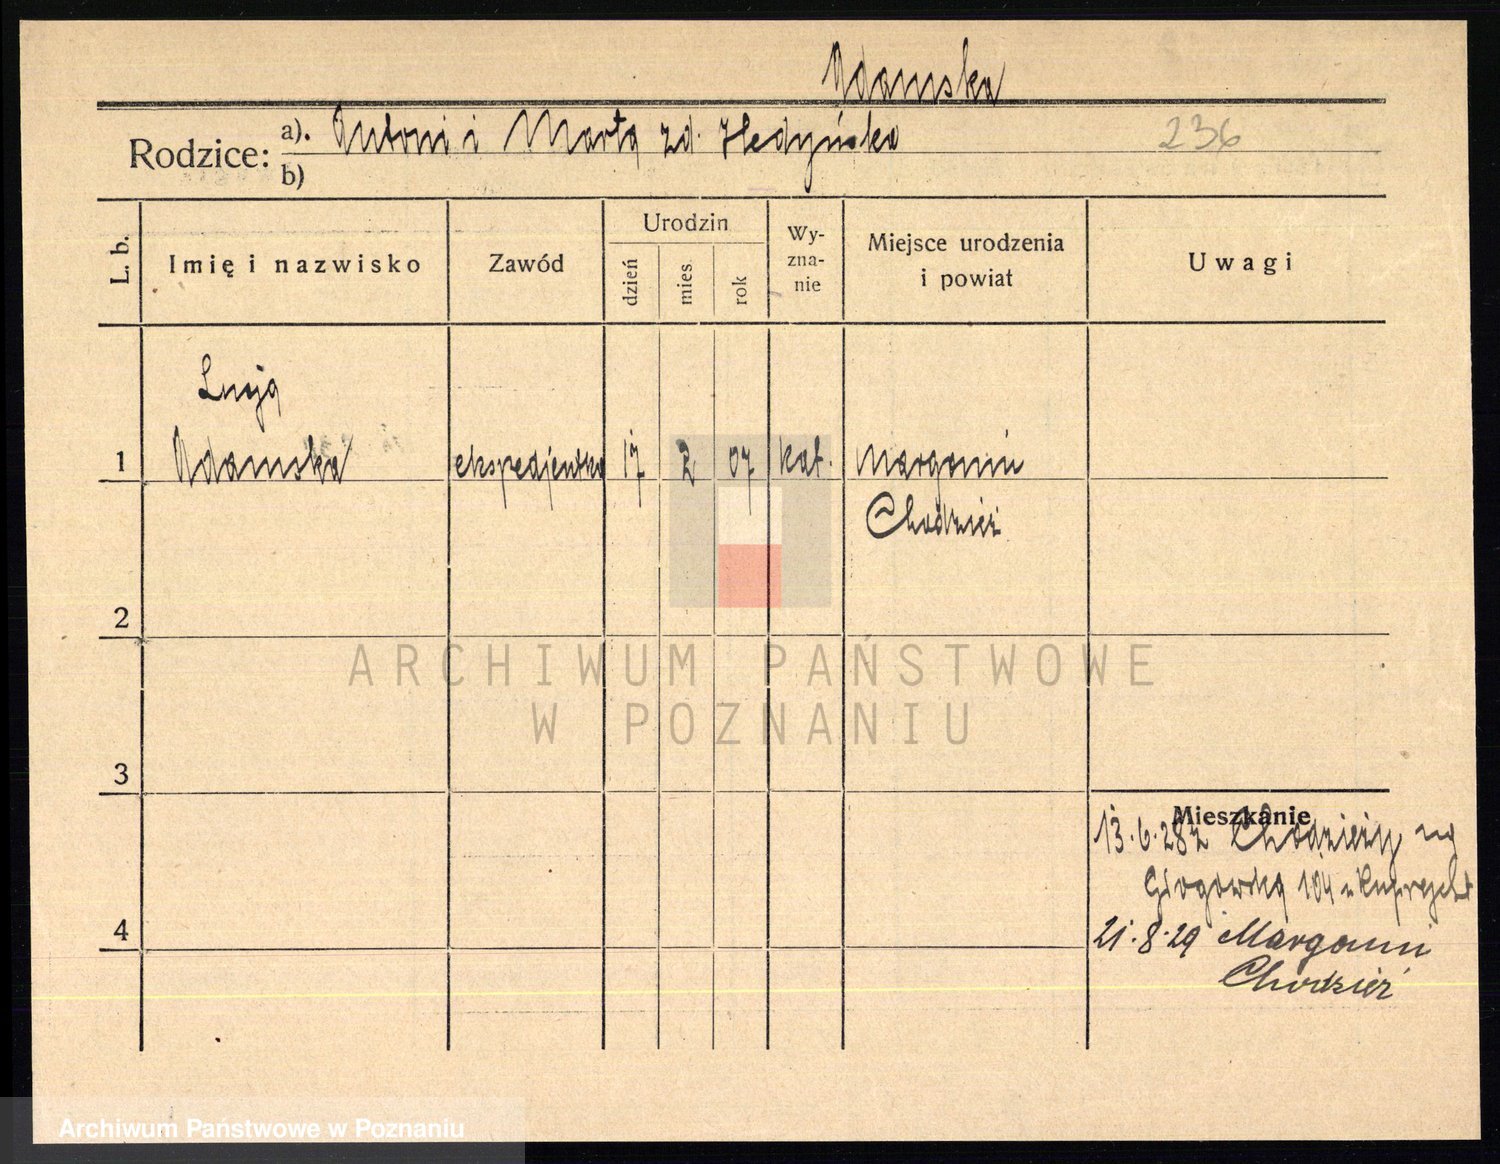 Adamska
Rodzice: a). Antoni i Marta zd.
236
b)
L. b.
Imię i nazwisko
Zawód
Urodzin
dzień
mies.
rok
Wy-
zna-
nie
Miejsce urodzenia
i powiat
Uwagi
Lucja
1 Adamska ekspedjentka 17 2 07 kat. Margonin
Chodzież
2
3
4
Mieszkanie
13.6.28 z Chodzieży na
Głogowską 104 u
21.8.29 Margonin
Chodzież
ARCHIWUM PAŃSTWOWE
W POZNANIU
Archiwum Państwowe w Poznaniu